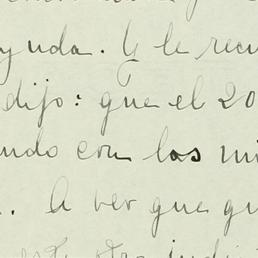 yuda. Y le recu
dijo: que el 20
ndo con los mi
. A ver que qu